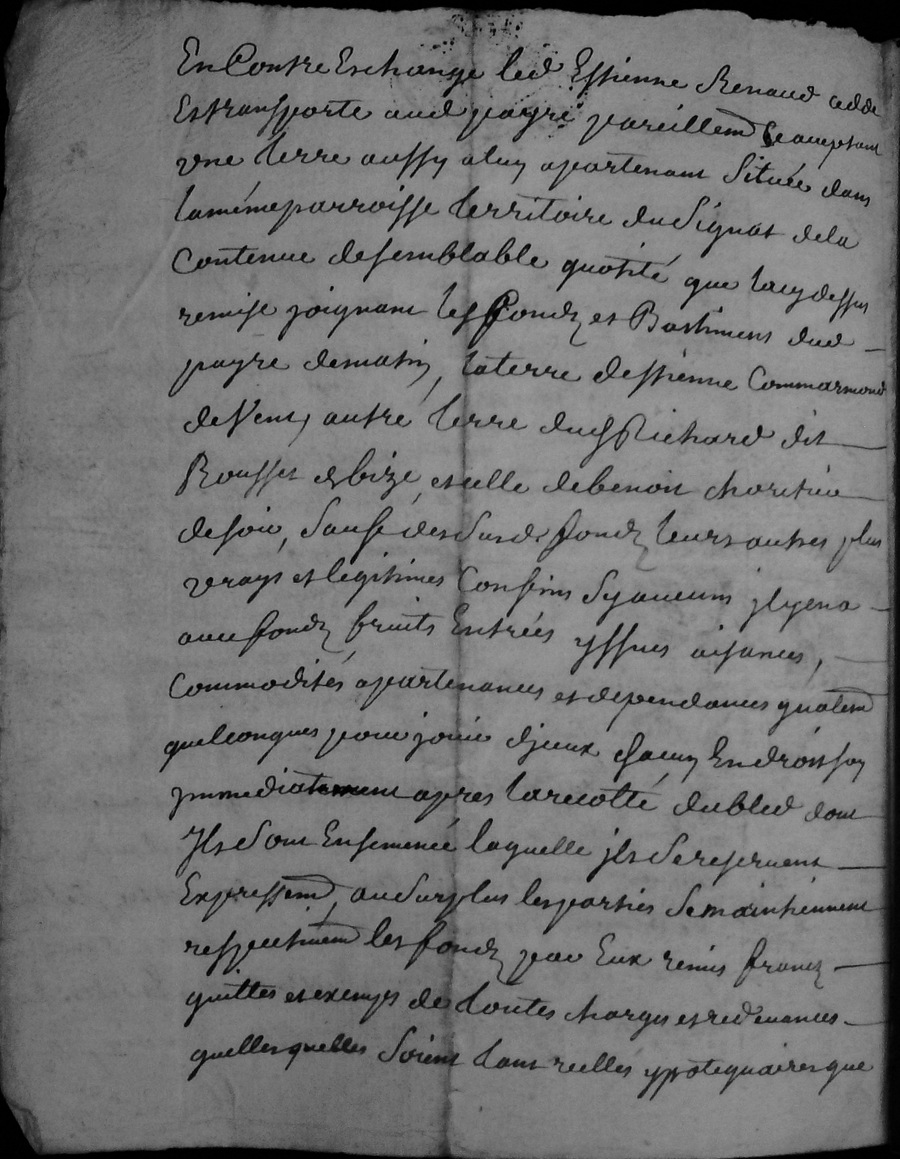 En Contre Eschange led Estienne Renaud cedde
Et transporte aud payre pareillem ce aceptant
une terre aussy a luy apartenant Située dans
la même parroisse territoire du Signat de la
Contenue de semblable quotité que la cy dessus
remise joignant les fondz et Bastimens dud
payre de matin, la terre destienne Commarmond
de Vent, autre terre dud Richard dit
Rousset de bize, et celle de benoit
de soir, Sauf desd fondz leurs autres plus
vrays et legitimes Confins Sy aucuns jl y en a
avec fondz fruits Entrées yssues aisances,
Commodités apartenances et dependances gnalem
quelconques pour jouir djceux chacun En droit soy
jmmediatement apres la recolte du bled dont
Jls Sont Ensemencé laquelle jls Se reservent
Expressem, au Surplus les parties Se maintiennent
respectivem les fondz par Eux remis francz
quittes et exemps de toutes charges et redevances
quelles quelles Soient tant reelles ypotequaires que